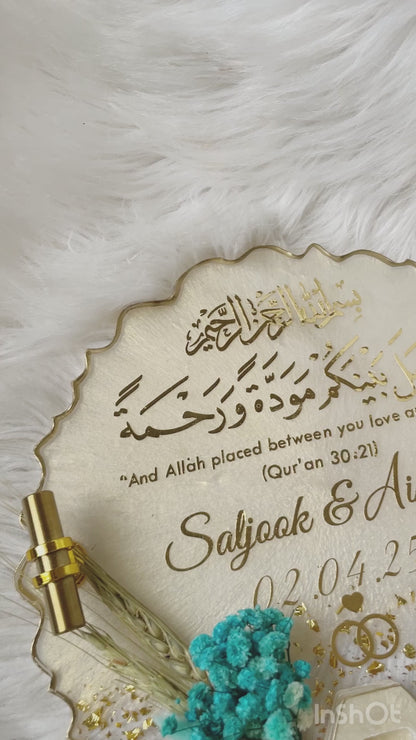 بسم الله الرحمن الرحيم
بَيْنَكُمْ مَوَدَّةً وَرَحْمَةً
"And Allah placed between you love
(Qur'an 30:21)
Saljook & Ai
02.04.25
InShOt